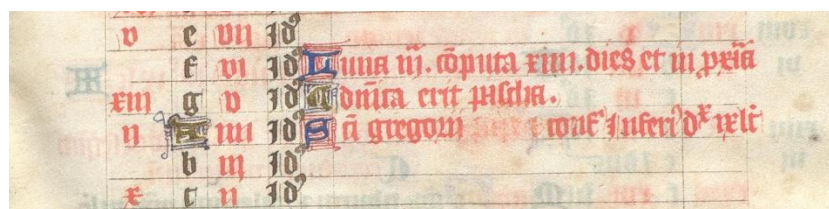 v e vii Id'
f vi Id' Luna iij. cōputa xiiii. dies et in pxīa
xiii g v Id' dn̄ica erit pascha.
ii A iiii Id' Sc̄i gregorii conf'
b iii Id'
x c ii Id'